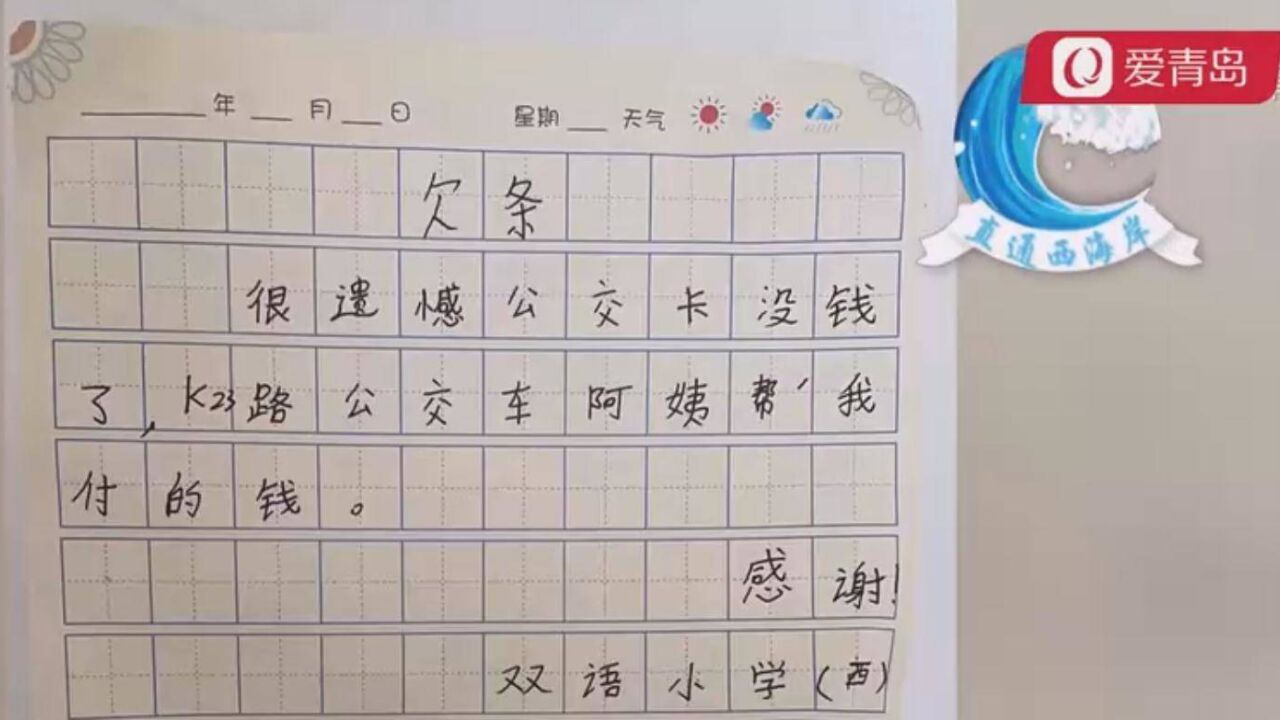 爱青岛
直通西海岸
____年__月__日 星期__天气
欠条
很遗憾公交卡没钱
了,K23路公交车阿姨帮我
付的钱。
感谢!
双语小学(西)